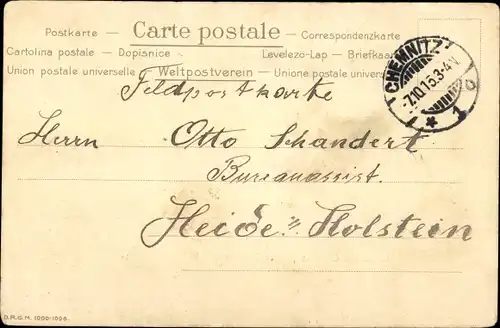 Postkarte — Carte postale — Correspondenzkarte
Cartolina postale — Dopisnice Levelezo-Lap — Briefkaart
Union postale universelle — Weltpostverein — Unione postale univers
CHEMNITZ
-7.10.15.3-4N
1 * 1
Feldpostkarte
Herrn Otto Schandert
Bureauassist.
Heide i/ Holstein
D.R.G.M. 1000-1006.